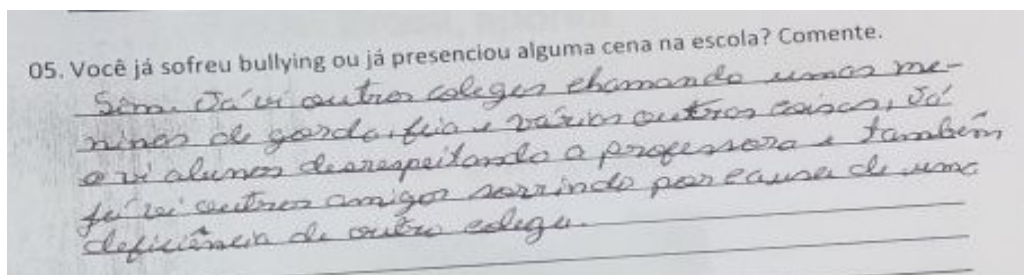 05. Você já sofreu bullying ou já presenciou alguma cena na escola? Comente.
Sim. Já vi outros colegas chamando umas me-
ninas de gorda, feia e várias outras coisas, Já
vi alunos desrespeitando a professora e também
já vi outros amigos sorrindo por causa de uma
deficiência de outro colega.